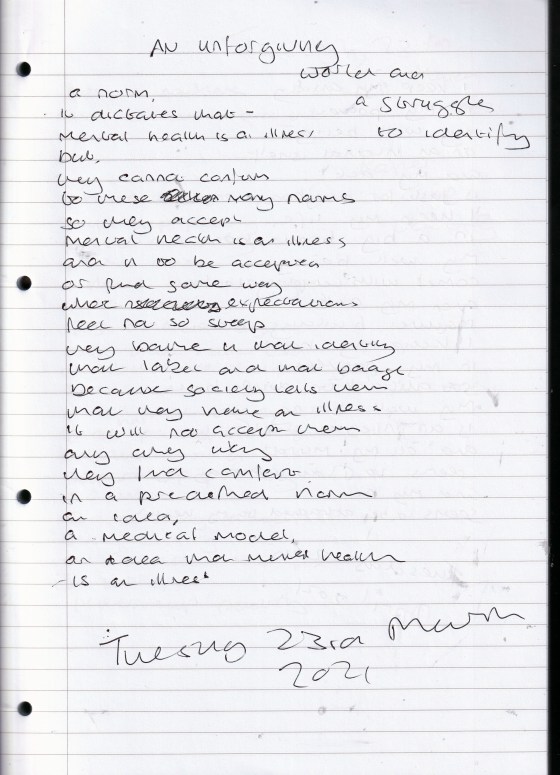 An unforgiving
world and
a struggle
to identify
a norm,
it dictates that -
Mental health is a illness
but,
they cannot conform
to these many norms
so they accept
Mental health is an illness
and it to be accepted
or find some way
where expectations
feel not so steep
they bathe in that identity
that label and that badge
because society tells them
that they have an illness
it will not accept them
any other way
they find comfort
in a predefined norm
an idea,
a medical model,
an idea that mental health
is an illness
Tuesday 23rd March
2021